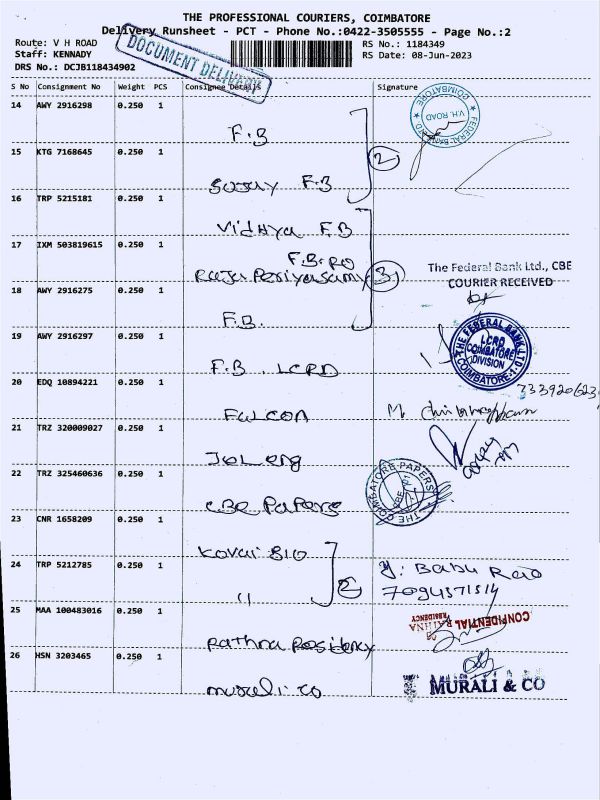 THE PROFESSIONAL COURIERS, COIMBATORE
Delivery Runsheet - PCT - Phone No.:0422-3505555 - Page No.:2
Route: V H ROAD
RS No.: 1184349
Staff: KENNADY
RS Date: 08-Jun-2023
DRS No.: DCJB118434902
DOCUMENT DELIVERY
S No Consignment No Weight PCS Consignee Details Signature
14 AWY 2916298 0.250 1
F.B
FEDERAL BANK LTD COIMBATORE V.H. ROAD
15 KTG 7168645 0.250 1
2
F.B
16 TRP 5215181 0.250 1
Vidhya F.B
17 IXM 503819615 0.250 1
F.B.RO
Raja Periyasamy 3
The Federal Bank Ltd., CBE
COURIER RECEIVED
18 AWY 2916275 0.250 1
F.B.
19 AWY 2916297 0.250 1
F.B. LCRD
THE FEDERAL BANK LTD. LCRD COIMBATORE DIVISION COIMBATORE-1
20 EDQ 10894221 0.250 1
733920623
Falcon
21 TRZ 320009027 0.250 1
22 TRZ 325460636 0.250 1
CBE Papers
THE COIMBATORE PAPERS
23 CNR 1658209 0.250 1
Kovai Bio
24 TRP 5212785 0.250 1
2
"
Y. Babu Rao
7094571514
25 MAA 100483016 0.250 1
CONFIDENTIAL
RATHNA
RESIDENCY
Rathna Residency
26 HSN 3203465 0.250 1
Murali. co
MURALI & CO